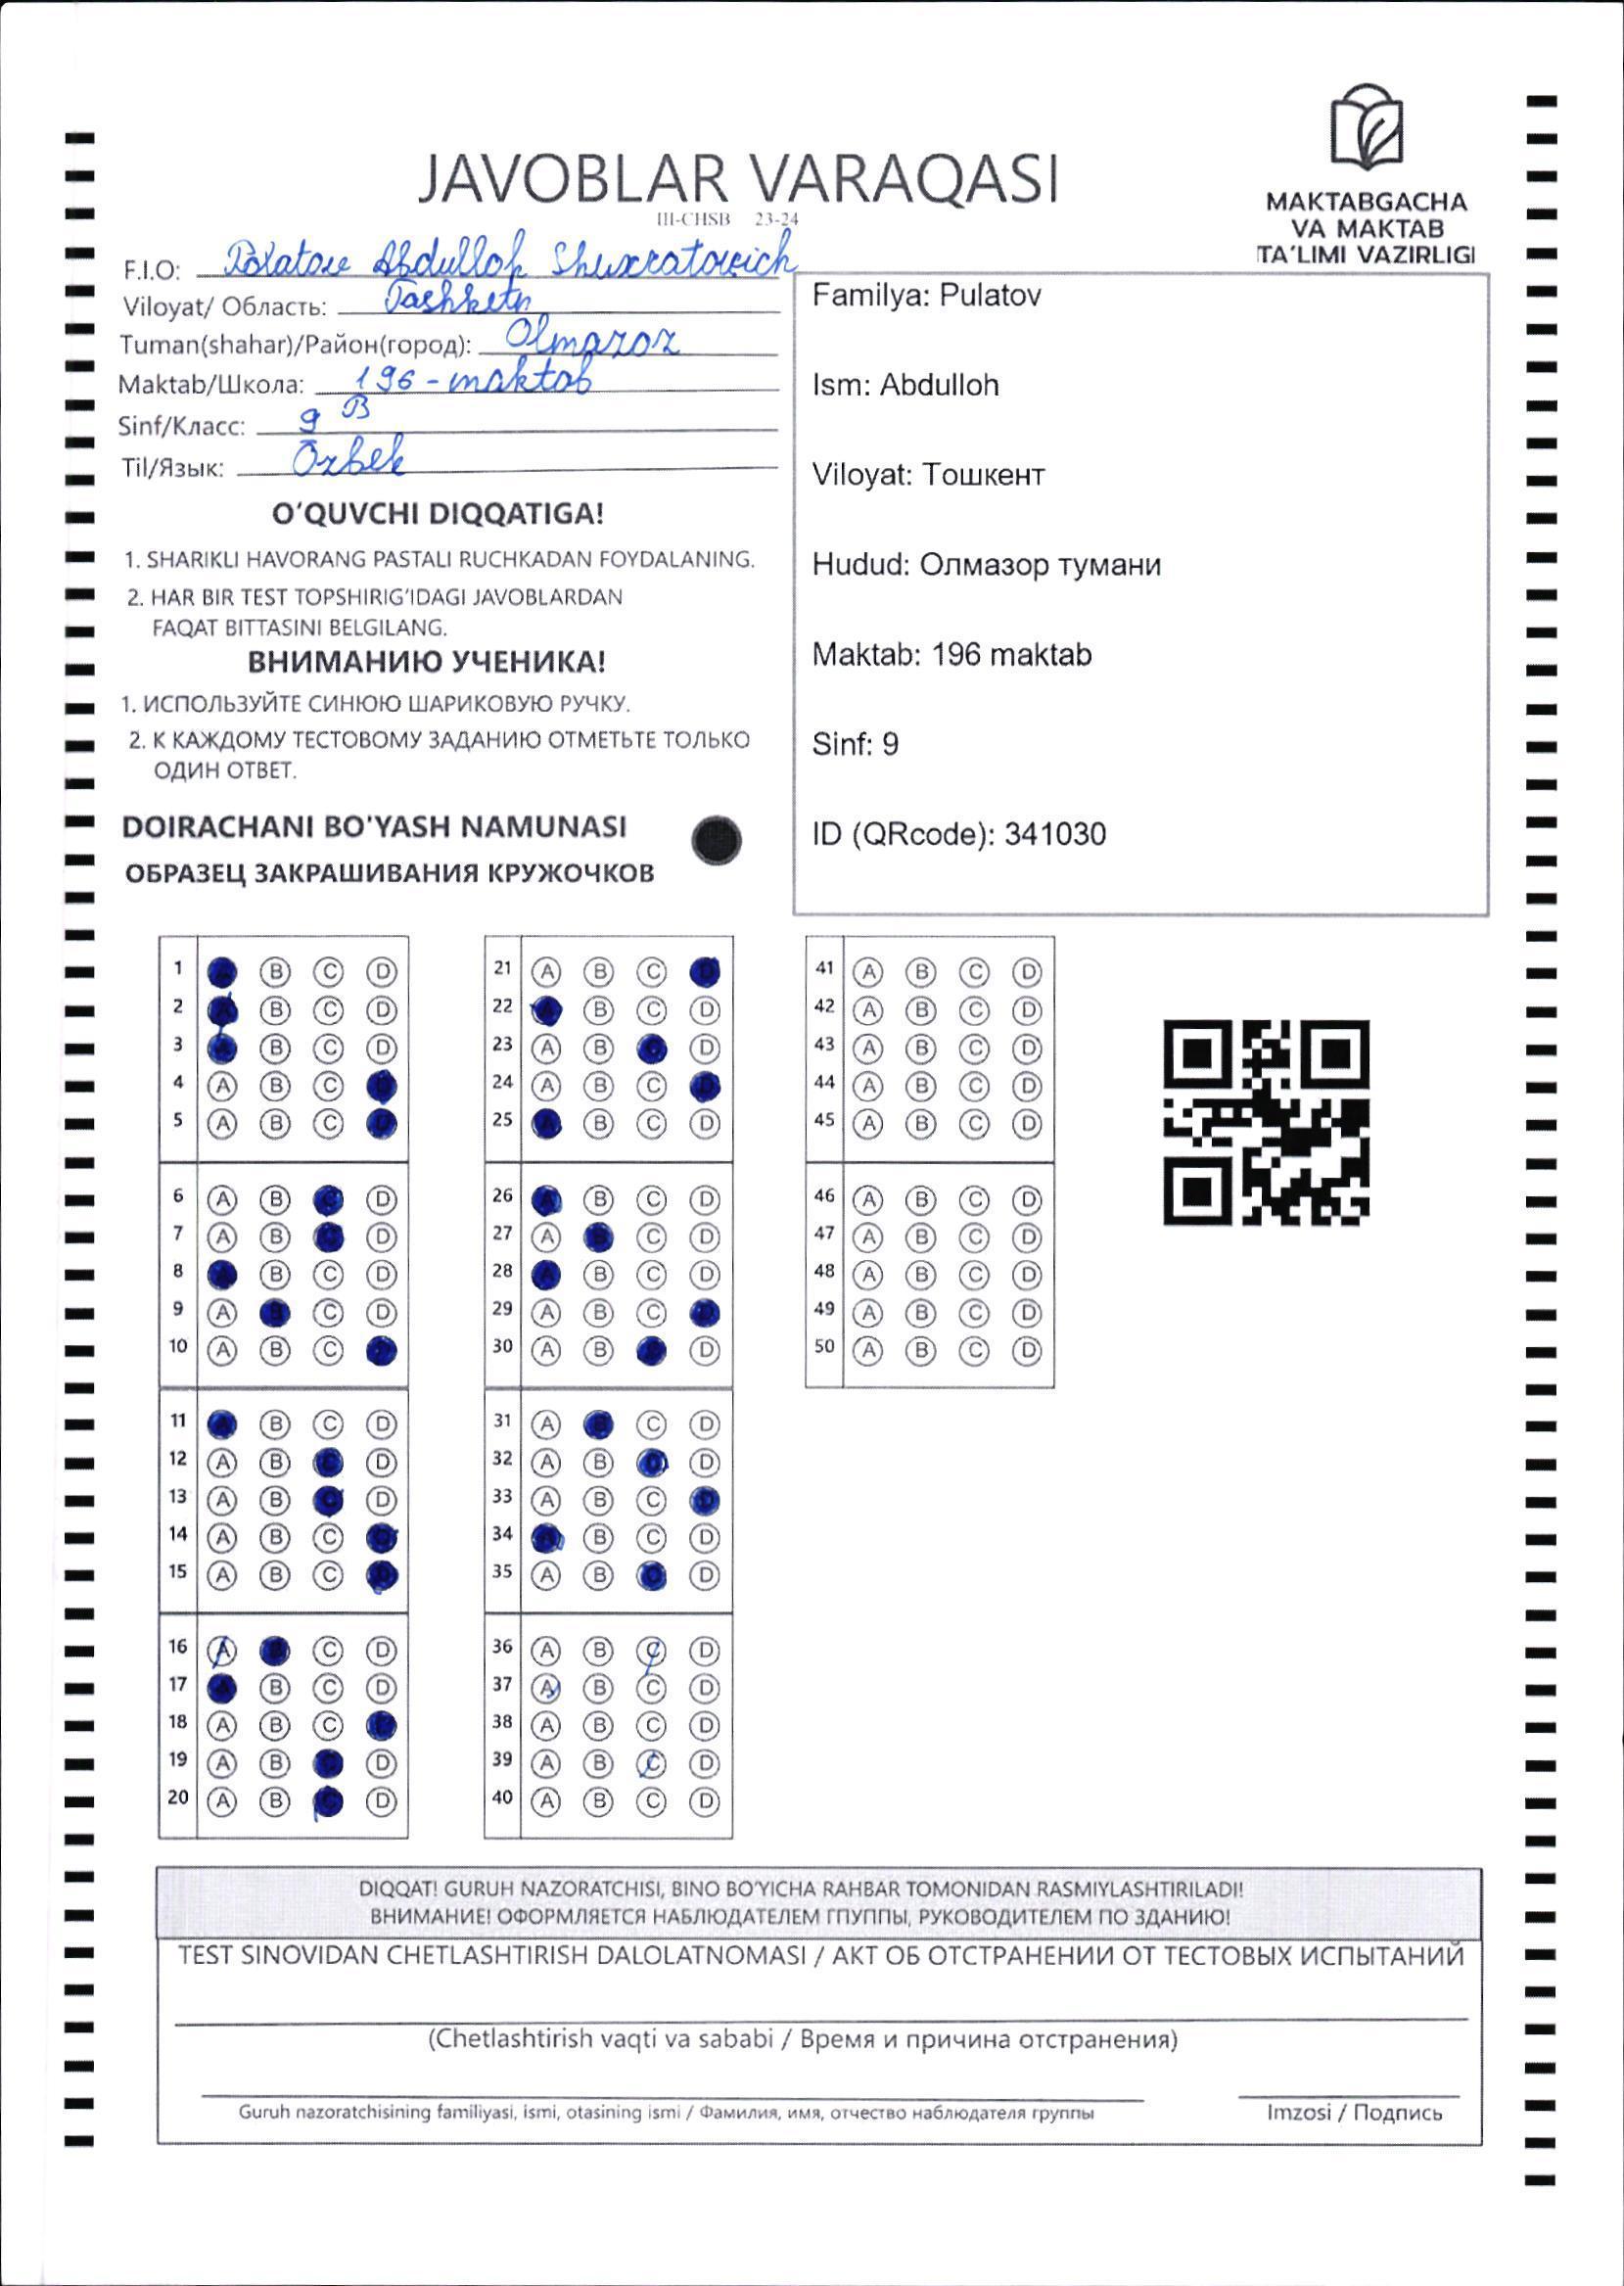 JAVOBLAR VARAQASI
III-CHSB 23-24
MAKTABGACHA
VA MAKTAB
TA'LIMI VAZIRLIGI
F.I.O: Polatov Abdulloh Shuxratovich
Viloyat/ Область: Tashketn
Tuman(shahar)/Район(город): Olmazor
Maktab/Школа: 196-maktab
Sinf/Класс: 9 B
Til/Язык: Ozbek
O'QUVCHI DIQQATIGA!
1. SHARIKLI HAVORANG PASTALI RUCHKADAN FOYDALANING.
2. HAR BIR TEST TOPSHIRIG'IDAGI JAVOBLARDAN
FAQAT BITTASINI BELGILANG.
ВНИМАНИЮ УЧЕНИКА!
1. ИСПОЛЬЗУЙТЕ СИНЮЮ ШАРИКОВУЮ РУЧКУ.
2. К КАЖДОМУ ТЕСТОВОМУ ЗАДАНИЮ ОТМЕТЬТЕ ТОЛЬКО
ОДИН ОТВЕТ.
DOIRACHANI BO'YASH NAMUNASI
ОБРАЗЕЦ ЗАКРАШИВАНИЯ КРУЖОЧКОВ
Familya: Pulatov
Ism: Abdulloh
Viloyat: Тошкент
Hudud: Олмазор тумани
Maktab: 196 maktab
Sinf: 9
ID (QRcode): 341030
1 A B C D
2 A B C D
3 A B C D
4 A B C D
5 A B C D
6 A B C D
7 A B C D
8 A B C D
9 A B C D
10 A B C D
11 A B C D
12 A B C D
13 A B C D
14 A B C D
15 A B C D
16 A B C D
17 A B C D
18 A B C D
19 A B C D
20 A B C D
21 A B C D
22 A B C D
23 A B C D
24 A B C D
25 A B C D
26 A B C D
27 A B C D
28 A B C D
29 A B C D
30 A B C D
31 A B C D
32 A B C D
33 A B C D
34 A B C D
35 A B C D
36 A B C D
37 A B C D
38 A B C D
39 A B C D
40 A B C D
41 A B C D
42 A B C D
43 A B C D
44 A B C D
45 A B C D
46 A B C D
47 A B C D
48 A B C D
49 A B C D
50 A B C D
DIQQAT! GURUH NAZORATCHISI, BINO BO'YICHA RAHBAR TOMONIDAN RASMIYLASHTIRILADI!
ВНИМАНИЕ! ОФОРМЛЯЕТСЯ НАБЛЮДАТЕЛЕМ ГПУППЫ, РУКОВОДИТЕЛЕМ ПО ЗДАНИЮ!
TEST SINOVIDAN CHETLASHTIRISH DALOLATNOMASI / АКТ ОБ ОТСТРАНЕНИИ ОТ ТЕСТОВЫХ ИСПЫТАНИЙ
(Chetlashtirish vaqti va sababi / Время и причина отстранения)
Guruh nazoratchisining familiyasi, ismi, otasining ismi / Фамилия, имя, отчество наблюдателя группы
Imzosi / Подпись